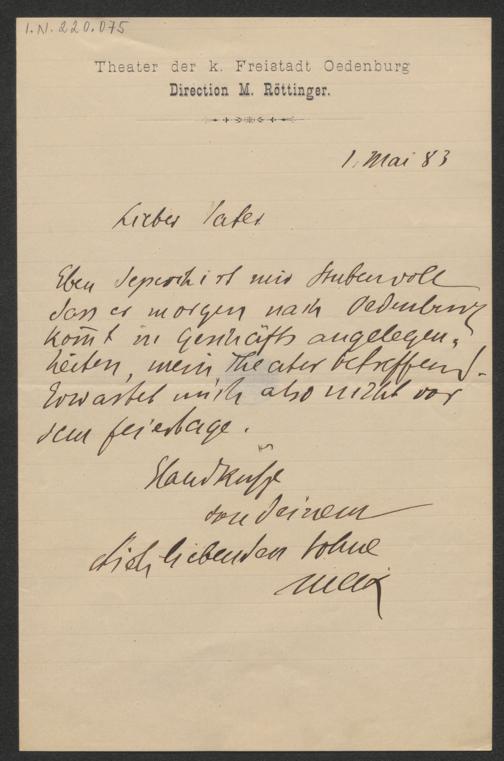 I.N. 220.075
Theater der k. Freistadt Oedenburg
Direction M. Röttinger.
1. Mai 83
Lieber Vater
Eben depeschirt mir Stubenvoll
dass er morgen nach Oedenburg
kom̄t in Geschäfts angelegen„
heiten, mein Theater betreffend.
Erwartet mich also nicht vor
dem feiertage.
Handküsse
von deinem
dich liebenden Sohne
Max